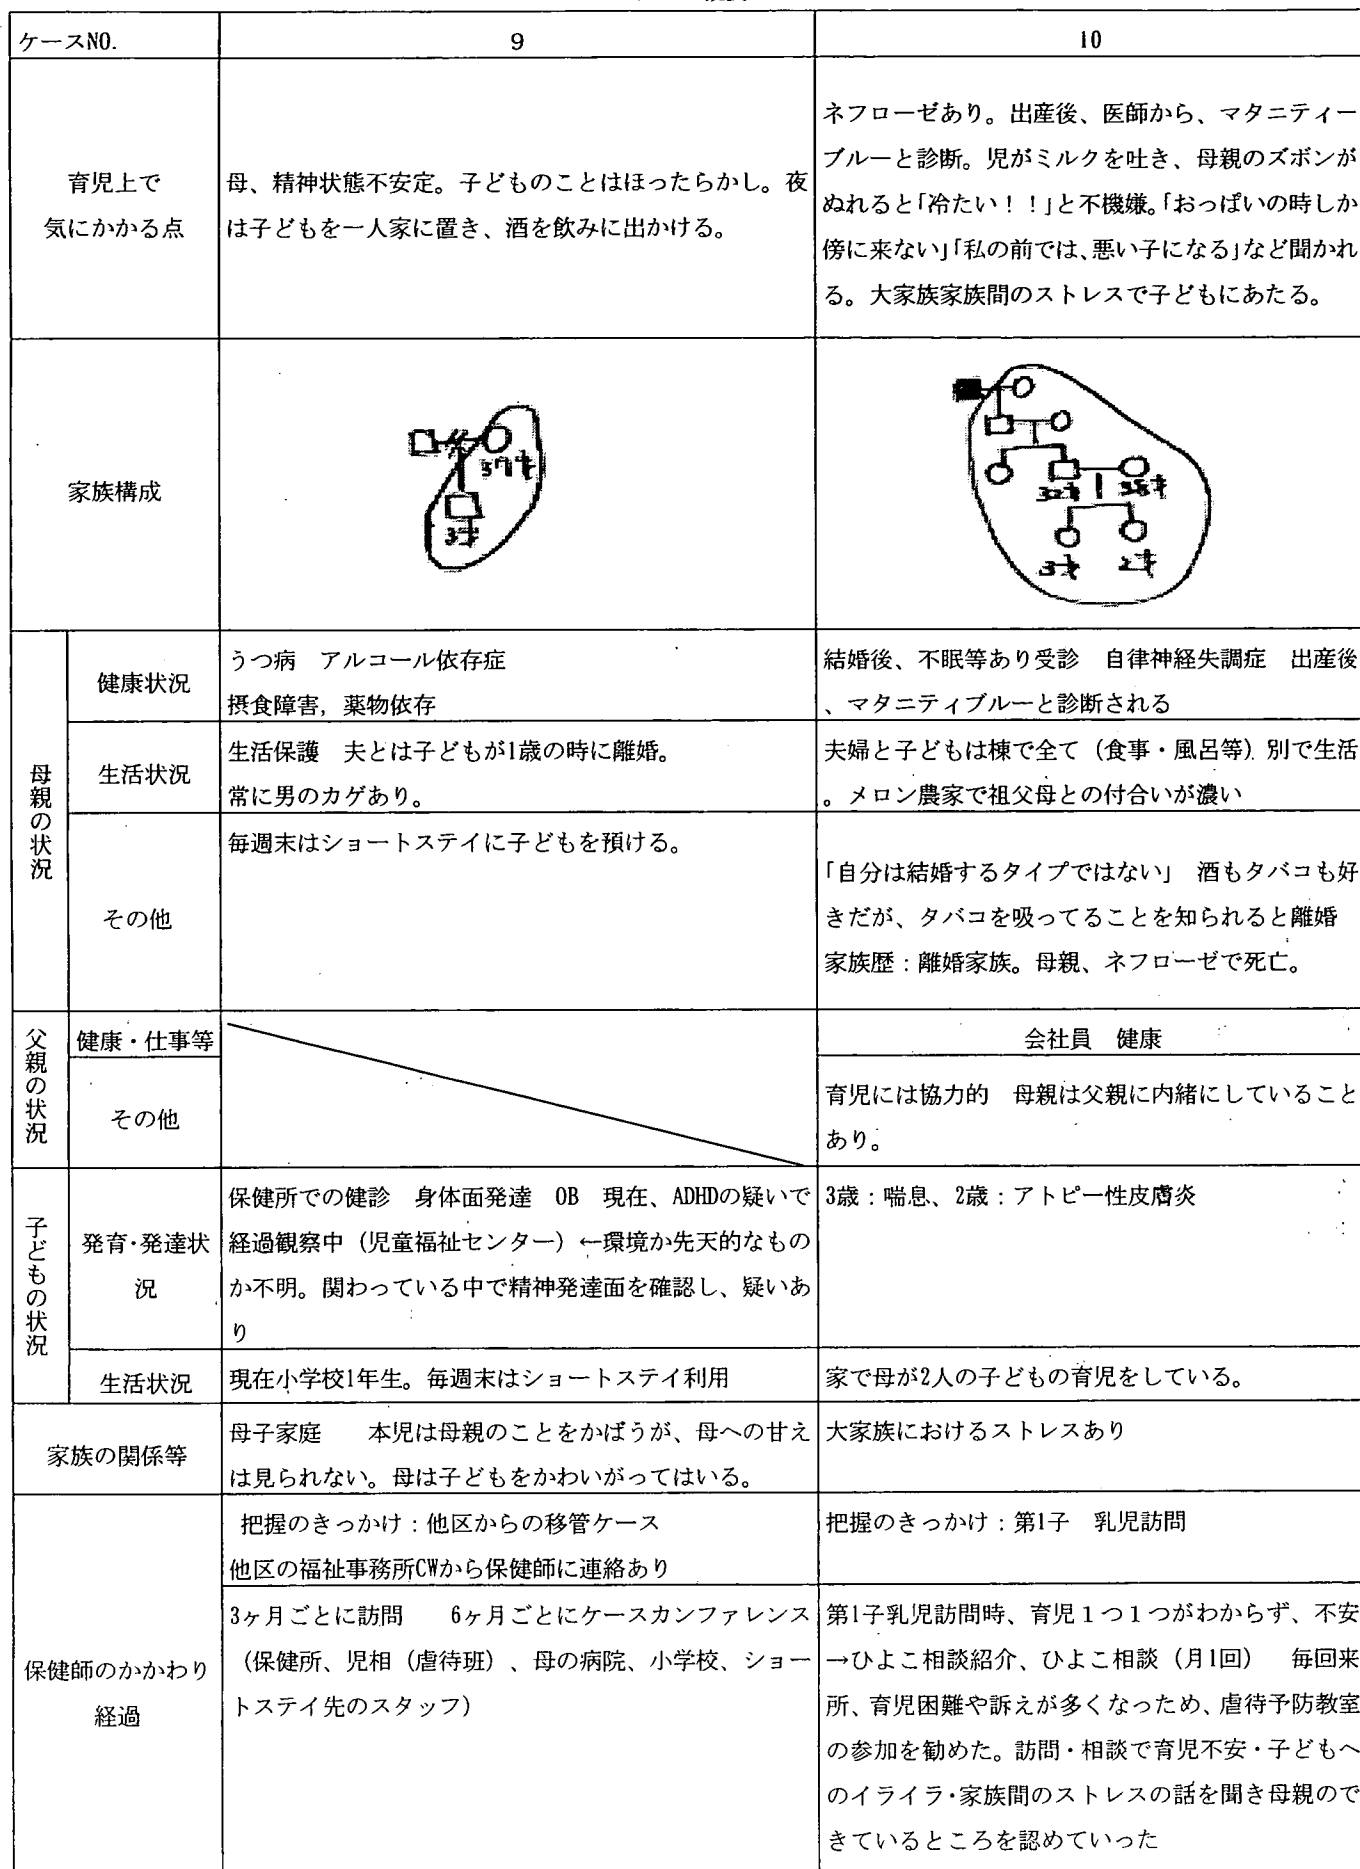 ケースNO.
9
10
育児上で
気にかかる点
母、精神状態不安定。子どものことはほったらかし。夜
は子どもを一人家に置き、酒を飲みに出かける。
ネフローゼあり。出産後、医師から、マタニティー
ブルーと診断。児がミルクを吐き、母親のズボンが
ぬれると「冷たい！！」と不機嫌。「おっぱいの時しか
傍に来ない」「私の前では、悪い子になる」など聞かれ
る。大家族家族間のストレスで子どもにあたる。
家族構成
3才
32才
3才
2才
母親の状況
健康状況
うつ病　アルコール依存症
摂食障害，薬物依存
結婚後、不眠等あり受診　自律神経失調症　出産後
、マタニティブルーと診断される
生活状況
生活保護　夫とは子どもが1歳の時に離婚。
常に男のカゲあり。
夫婦と子どもは棟で全て（食事・風呂等）別で生活
。メロン農家で祖父母との付合いが濃い
その他
毎週末はショートステイに子どもを預ける。
「自分は結婚するタイプではない」　酒もタバコも好
きだが、タバコを吸ってることを知られると離婚
家族歴：離婚家族。母親、ネフローゼで死亡。
父親の状況
健康・仕事等
会社員　健康
その他
育児には協力的　母親は父親に内緒にしていること
あり。
子どもの状況
発育・発達状
況
保健所での健診　身体面発達　OB　現在、ADHDの疑いで
経過観察中（児童福祉センター）←環境か先天的なもの
か不明。関わっている中で精神発達面を確認し、疑いあ
り
3歳：喘息、2歳：アトピー性皮膚炎
生活状況
現在小学校1年生。毎週末はショートステイ利用
家で母が2人の子どもの育児をしている。
家族の関係等
母子家庭　　本児は母親のことをかばうが、母への甘え
は見られない。母は子どもをかわいがってはいる。
大家族におけるストレスあり
保健師のかかわり
経過
把握のきっかけ：他区からの移管ケース
他区の福祉事務所CWから保健師に連絡あり
把握のきっかけ：第1子　乳児訪問
3ヶ月ごとに訪問　　6ヶ月ごとにケースカンファレンス
（保健所、児相（虐待班）、母の病院、小学校、ショー
トステイ先のスタッフ）
第1子乳児訪問時、育児１つ１つがわからず、不安
→ひよこ相談紹介、ひよこ相談（月1回）　毎回来
所、育児困難や訴えが多くなっため、虐待予防教室
の参加を勧めた。訪問・相談で育児不安・子どもへ
のイライラ・家族間のストレスの話を聞き母親ので
きているところを認めていった